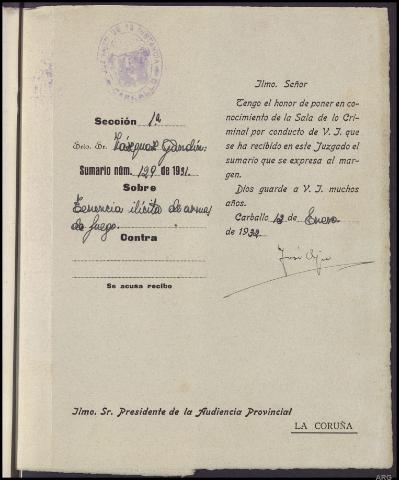 JUZGADO DE 1ª INSTANCIA
CARBALLO
Sección 1ª
Srio. Sr. Vázquez Gundín
Sumario núm. 129 de 1931.
Sobre
Tenencia ilícita de armas
de fuego.
Contra
Se acusa recibo
Ilmo. Señor
Tengo el honor de poner en co-
nocimiento de la Sala de lo Cri-
minal por conducto de V. I. que
se ha recibido en este Juzgado el
sumario que se expresa al mar-
gen.
Dios guarde a V. I. muchos
años.
Carballo 13 de Enero
de 1932
José
Ilmo. Sr. Presidente de la Audiencia Provincial
LA CORUÑA
ARG